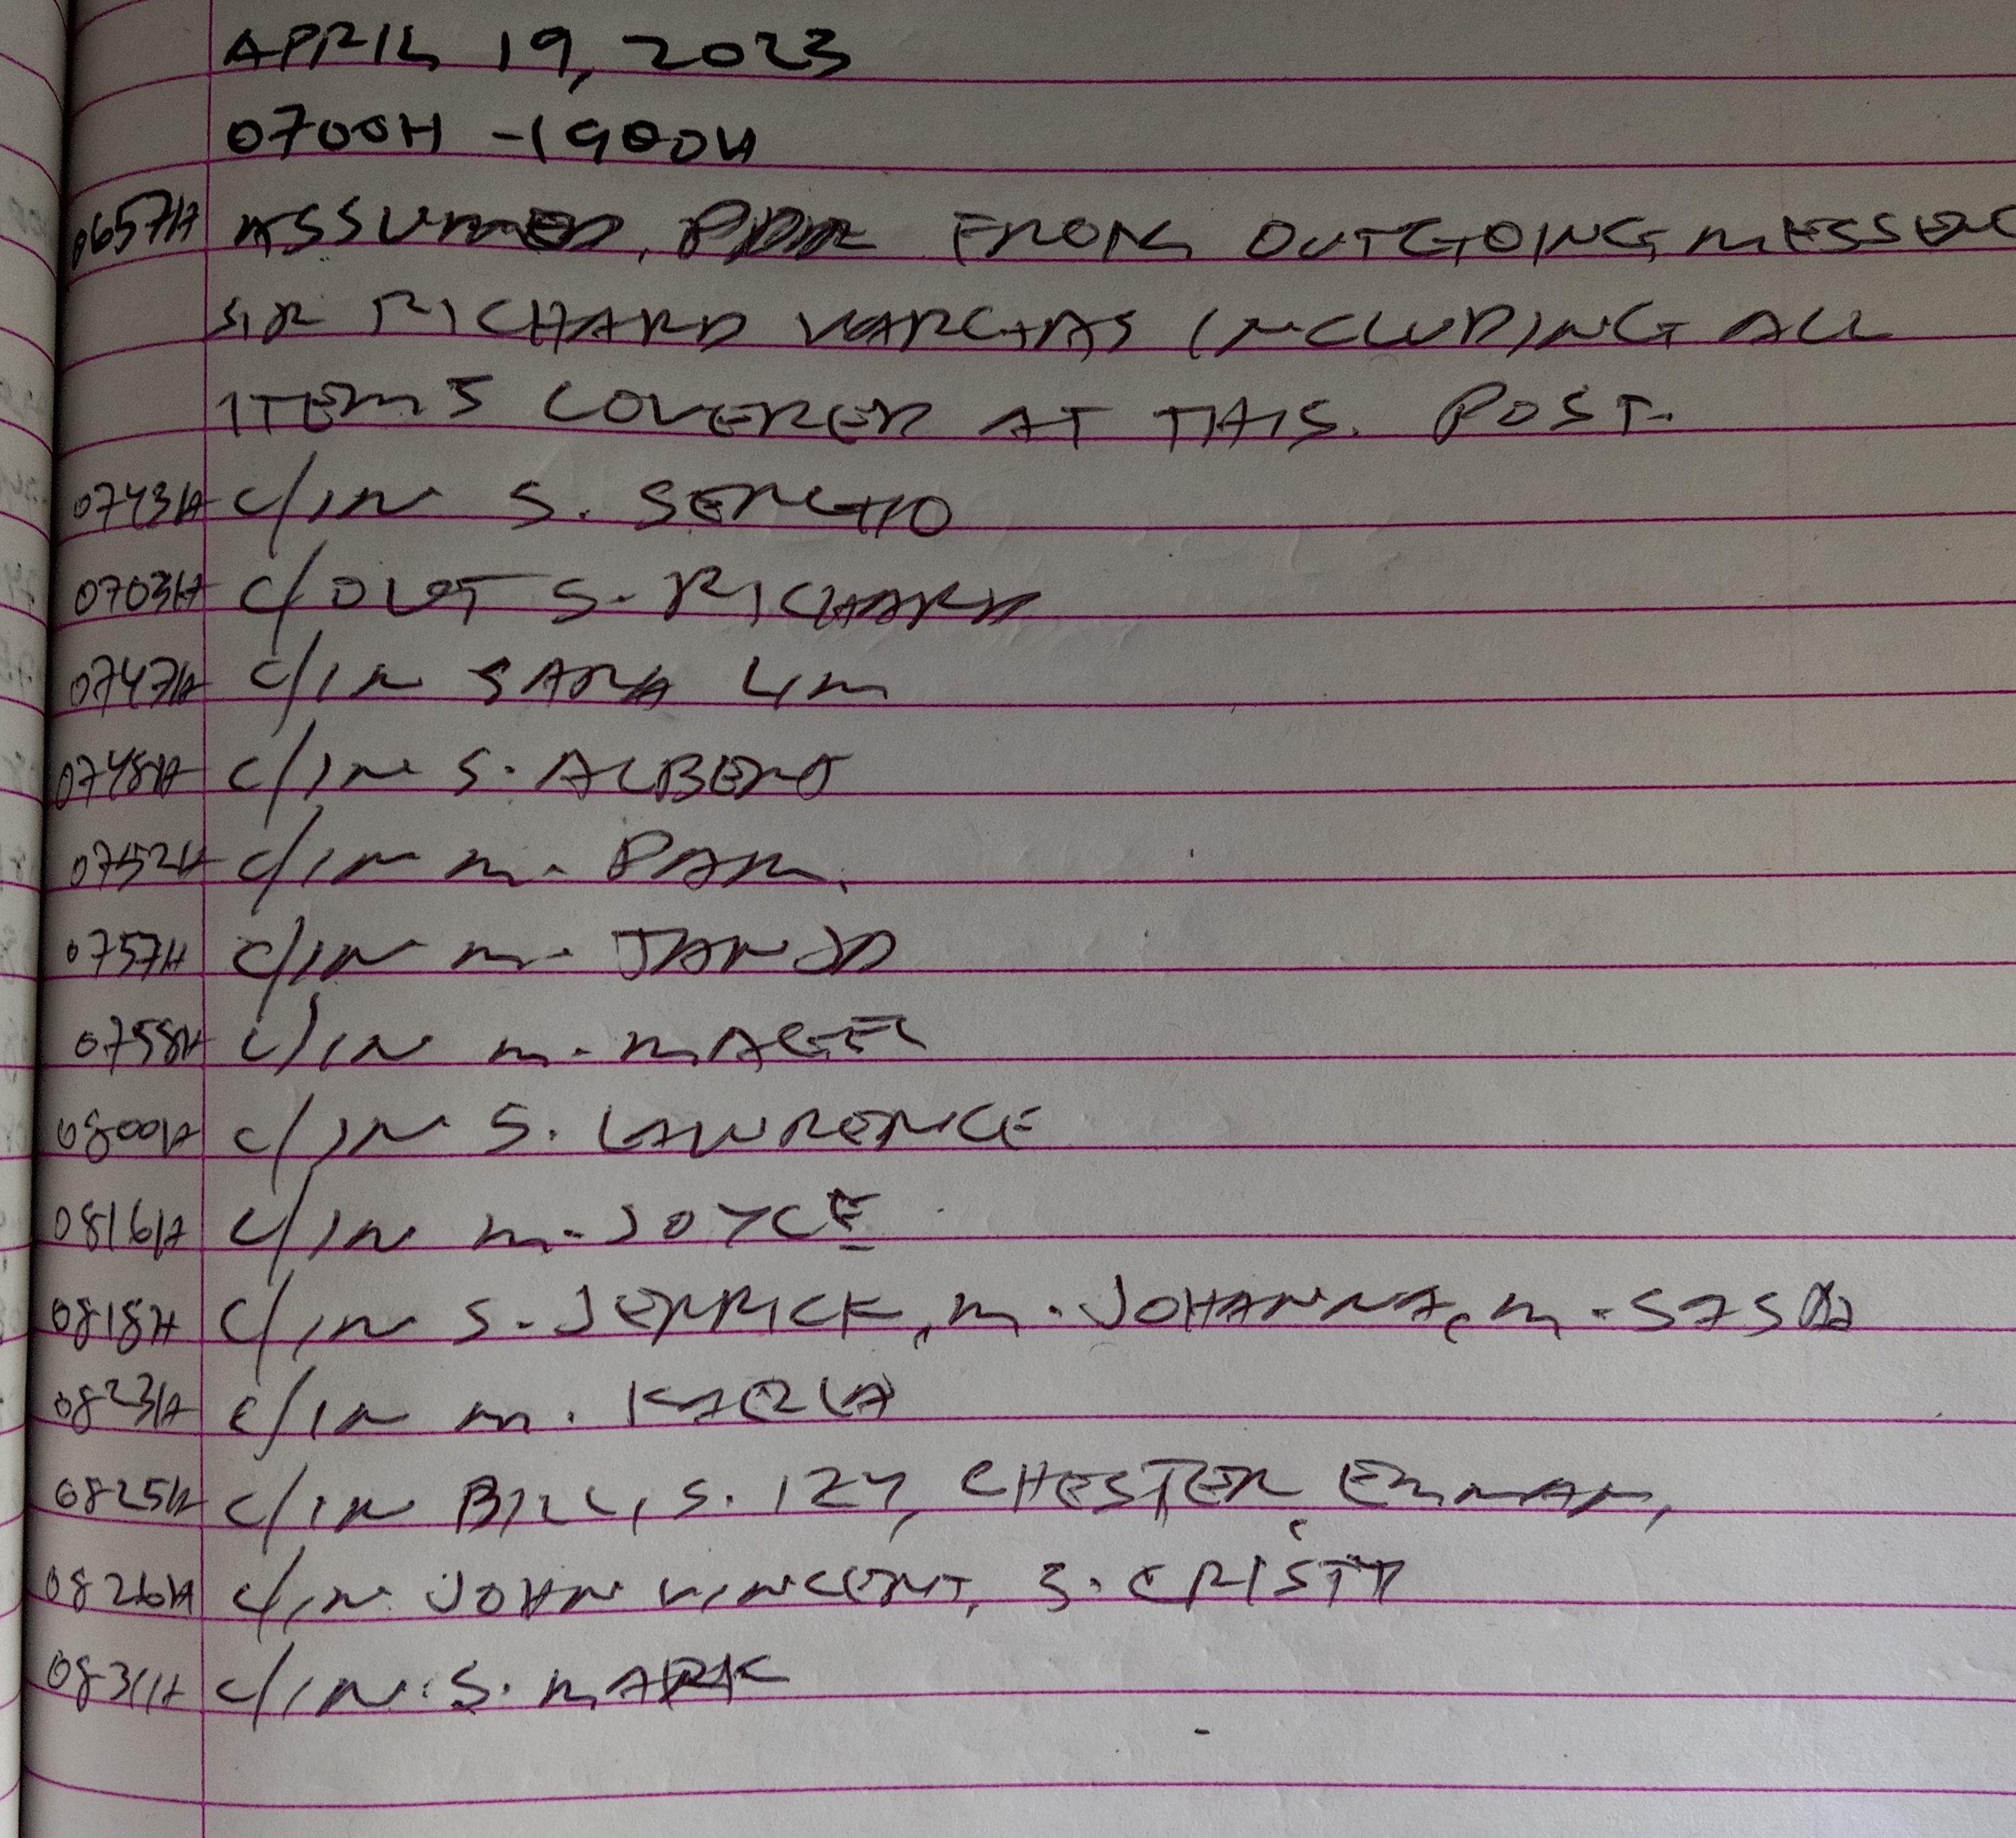 APRIL 19, 2023
0700H - 1900H
0657H ASSUMED, FROM OUTGOING MESSENG
SIR RICHARD VARGAS INCLUDING ALL
ITEMS COVERED AT THIS. POST.
0743H C/IN S. SERGIO
0703H C/OUT S. RICHARD
0747H C/IN SARA LIM
0748H C/IN S. ALBERT
0752H C/IN M. PAM.
0757H C/IN M.
0758H C/IN M.
0800H C/IN S. LAWRENCE
0816H C/IN M. JOYCE
0818H C/IN S. JERRICK, M. JOHANNA, M.
0823H C/IN M. KARLA
0825H C/IN BILL, S. IZY, CHESTER, EMMAN,
0826H C/IN JOHN VINCENT, S.
0831H C/IN S. MARK